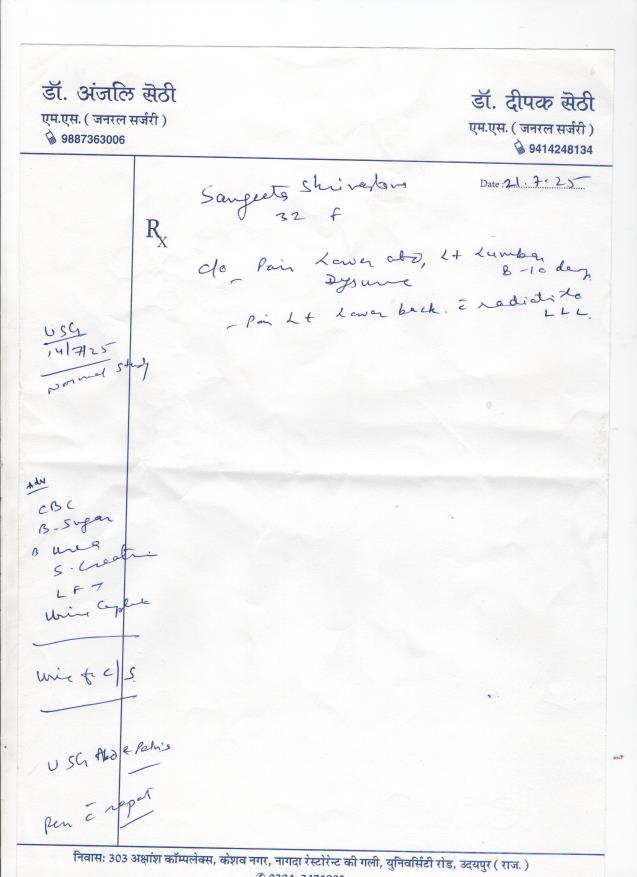 डॉ. अंजलि सेठी
एम.एस. ( जनरल सर्जरी )
9887363006
डॉ. दीपक सेठी
एम.एस. ( जनरल सर्जरी )
9414248134
Date : 21.7.25
Sangeeta Shrivastava
32 F
Rx
c/o - Pain Lower abd, Lt Lumbar
8-10 day
- Pain Lt Lower back. c̄ radiati to
LLL.
USG
14/7/25
Normal Study
Adv
CBC
B-Sugar
B Urea
S. Creatin
LFT
Urine
Urine for C/S
USG Abd & Pelvis
c̄ repot
निवास: 303 अक्षांश कॉम्पलेक्स, केशव नगर, नागदा रेस्टोरेन्ट की गली, युनिवर्सिटी रोड, उदयपुर ( राज. )